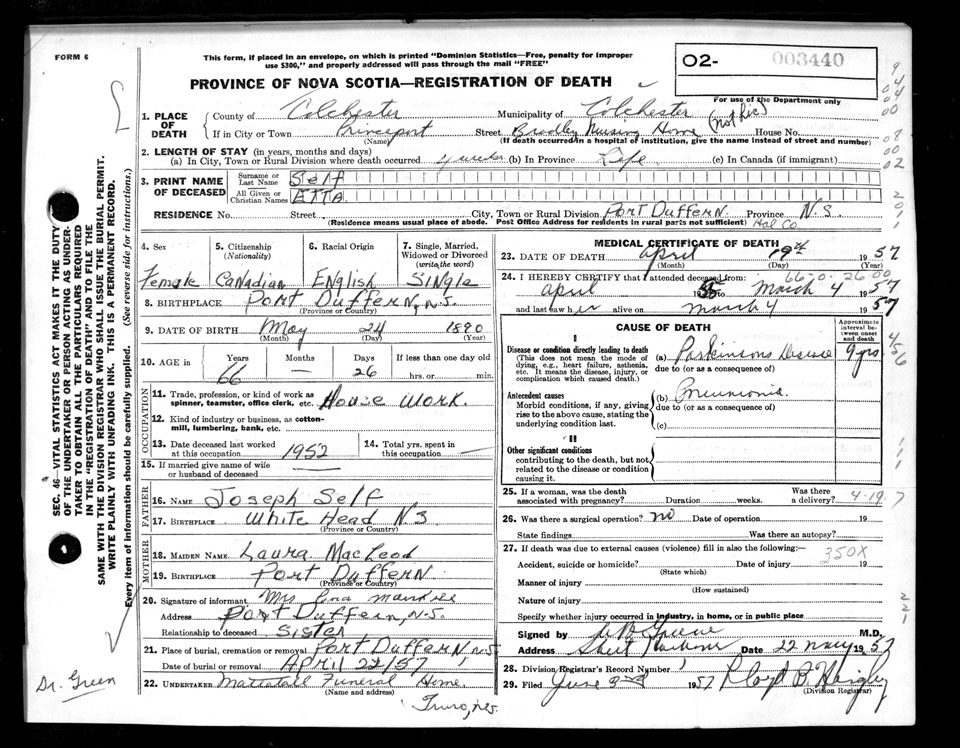 FORM 6
This form, if placed in an envelope, on which is printed "Dominion Statistics—Free, penalty for improper
use $300," and properly addressed will pass through the mail "FREE"
PROVINCE OF NOVA SCOTIA—REGISTRATION OF DEATH
O2- 003440
For use of the Department only
1. PLACE OF DEATH
County of Colchester Municipality of Colchester (not Rec)
If in City or Town Princeport Street Bradley Nursing Home House No.
(Name) (If death occurred in a hospital or institution, give the name instead of street and number)
2. LENGTH OF STAY (in years, months and days)
(a) In City, Town or Rural Division where death occurred 4 weeks (b) In Province Life (c) In Canada (if immigrant)
3. PRINT NAME OF DECEASED
Surname or Last Name Self
All Given or Christian Names ETTA
RESIDENCE No. Street City, Town or Rural Division Port Dufferin Province N.S.
(Residence means usual place of abode. Post Office Address for residents in rural parts not sufficient) Hal Co.
4. Sex Female
5. Citizenship (Nationality) Canadian
6. Racial Origin English
7. Single, Married, Widowed or Divorced (write the word) Single
8. BIRTHPLACE Port Dufferin, N.S.
(Province or Country)
9. DATE OF BIRTH May 24 1890
(Month) (Day) (Year)
10. AGE in Years Months Days If less than one day old
66 — 26 hrs. or min.
OCCUPATION
11. Trade, profession, or kind of work as spinner, teamster, office clerk, etc. House Work
12. Kind of industry or business, as cotton-mill, lumbering, bank, etc.
13. Date deceased last worked at this occupation 1952
14. Total yrs. spent in this occupation —
15. If married give name of wife or husband of deceased —
FATHER
16. NAME Joseph Self
17. BIRTHPLACE White Head N.S
(Province or Country)
MOTHER
18. MAIDEN NAME Laura MacLeod
19. BIRTHPLACE Port Dufferin
(Province or Country)
20. Signature of informant Mrs
Address Port Dufferin, N.S.
Relationship to deceased Sister
21. Place of burial, cremation or removal Port Dufferin N.S
Date of burial or removal April 22/57
22. UNDERTAKER Mattatall Funeral Home
(Name and address)
Truro, N.S.
MEDICAL CERTIFICATE OF DEATH
23. DATE OF DEATH April 19th 1957
(Month) (Day) (Year)
24. I HEREBY CERTIFY that I attended deceased from: 6670-2600
April 1955 to March 4 1957
and last saw her alive on March 4 1957
CAUSE OF DEATH
Approximate interval between onset and death
I
Disease or condition directly leading to death
(This does not mean the mode of dying, e.g., heart failure, asthenia, etc. It means the disease, injury, or complication which caused death.)
(a) Parkinsons Disease 9 yrs
due to (or as a consequence of)
Antecedent causes
Morbid conditions, if any, giving rise to the above cause, stating the underlying condition last.
(b) Pneumonia.
due to (or as a consequence of)
(c)
II
Other significant conditions
contributing to the death, but not related to the disease or condition causing it.
25. If a woman, was the death associated with pregnancy? Duration weeks. Was there a delivery? 4-19-7
26. Was there a surgical operation? no Date of operation 19
State findings Was there an autopsy?
27. If death was due to external causes (violence) fill in also the following:— 350X
Accident, suicide or homicide? Date of injury 19
(State which)
Manner of injury
(How sustained)
Nature of injury
Specify whether injury occurred in industry, in home, or in public place
Signed by Greene M.D.
Address Sheet Harbour Date 22 May 1957
28. Division Registrar's Record Number 1
29. Filed June 3rd 1957 Lloyd B.
(Division Registrar)
SEC. 46—VITAL STATISTICS ACT MAKES IT THE DUTY
OF THE UNDERTAKER OR PERSON ACTING AS UNDER-
TAKER TO OBTAIN ALL THE PARTICULARS REQUIRED
IN THE "REGISTRATION OF DEATH" AND TO FILE THE
SAME WITH THE DIVISION REGISTRAR WHO SHALL ISSUE THE BURIAL PERMIT.
WRITE PLAINLY WITH UNFADING INK. THIS IS A PERMANENT RECORD.
Every item of information should be carefully supplied. (See reverse side for instructions.)
Dr. Green